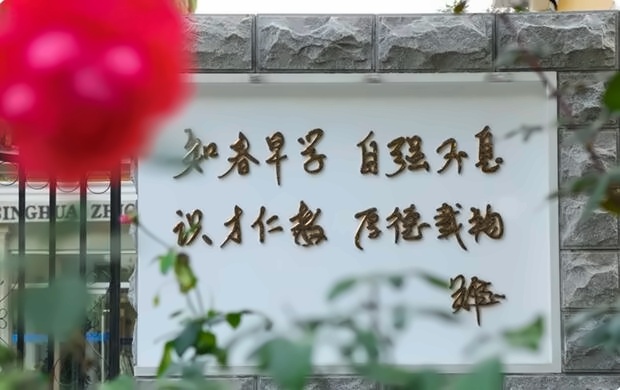 知春早学 自强不息
识才仁教 厚德载物
INGHUA ZH